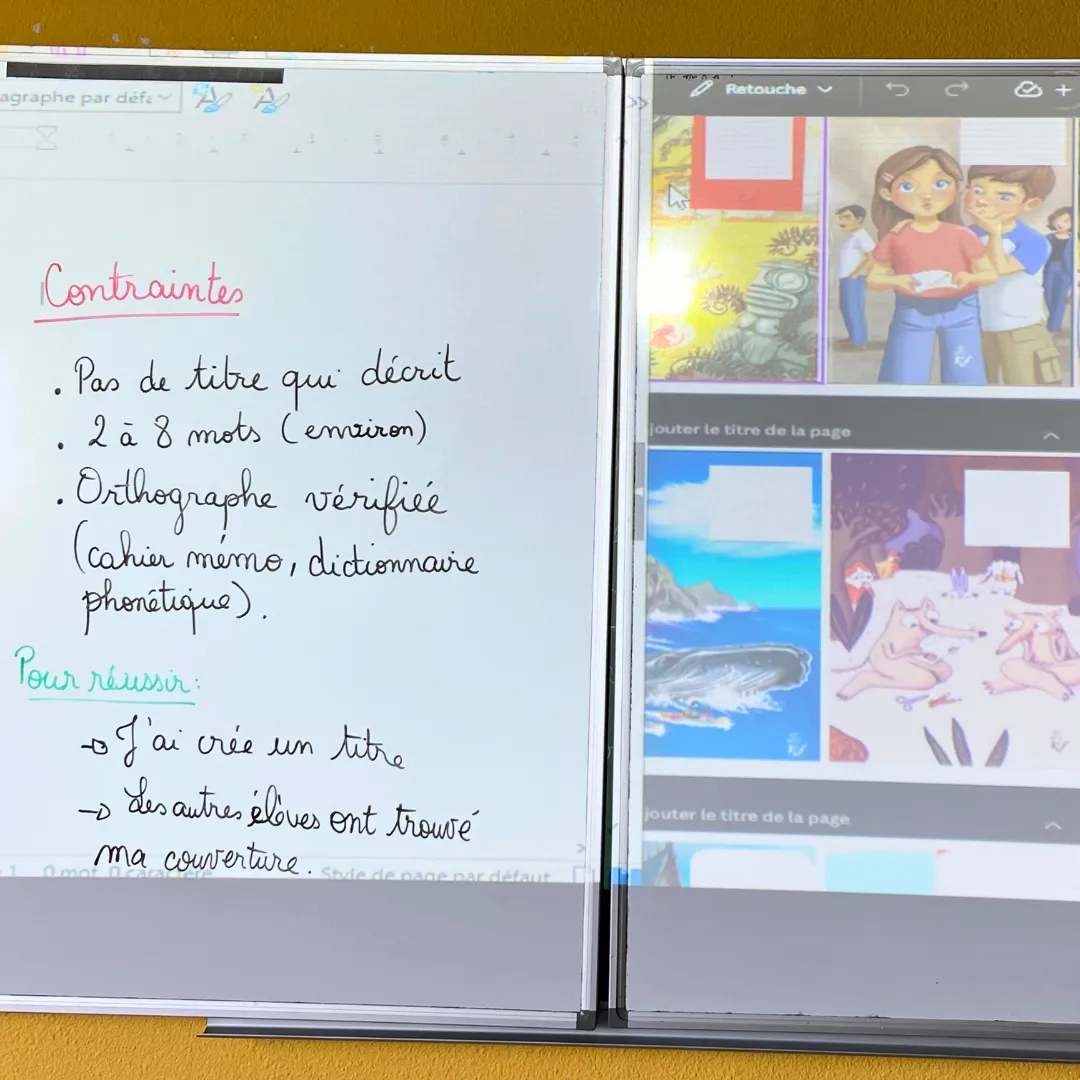 agraphe par défa
Contraintes
. Pas de titre qui décrit
. 2 à 8 mots (environ)
. Orthographe vérifiée
(cahier mémo, dictionnaire
phonétique).
Pour réussir:
→ J'ai crée un titre
→ Les autres élèves ont trouvé
ma couverture.
1 0 mot, 0 caractère Style de page par défaut
Retouche
jouter le titre de la page
jouter le titre de la page